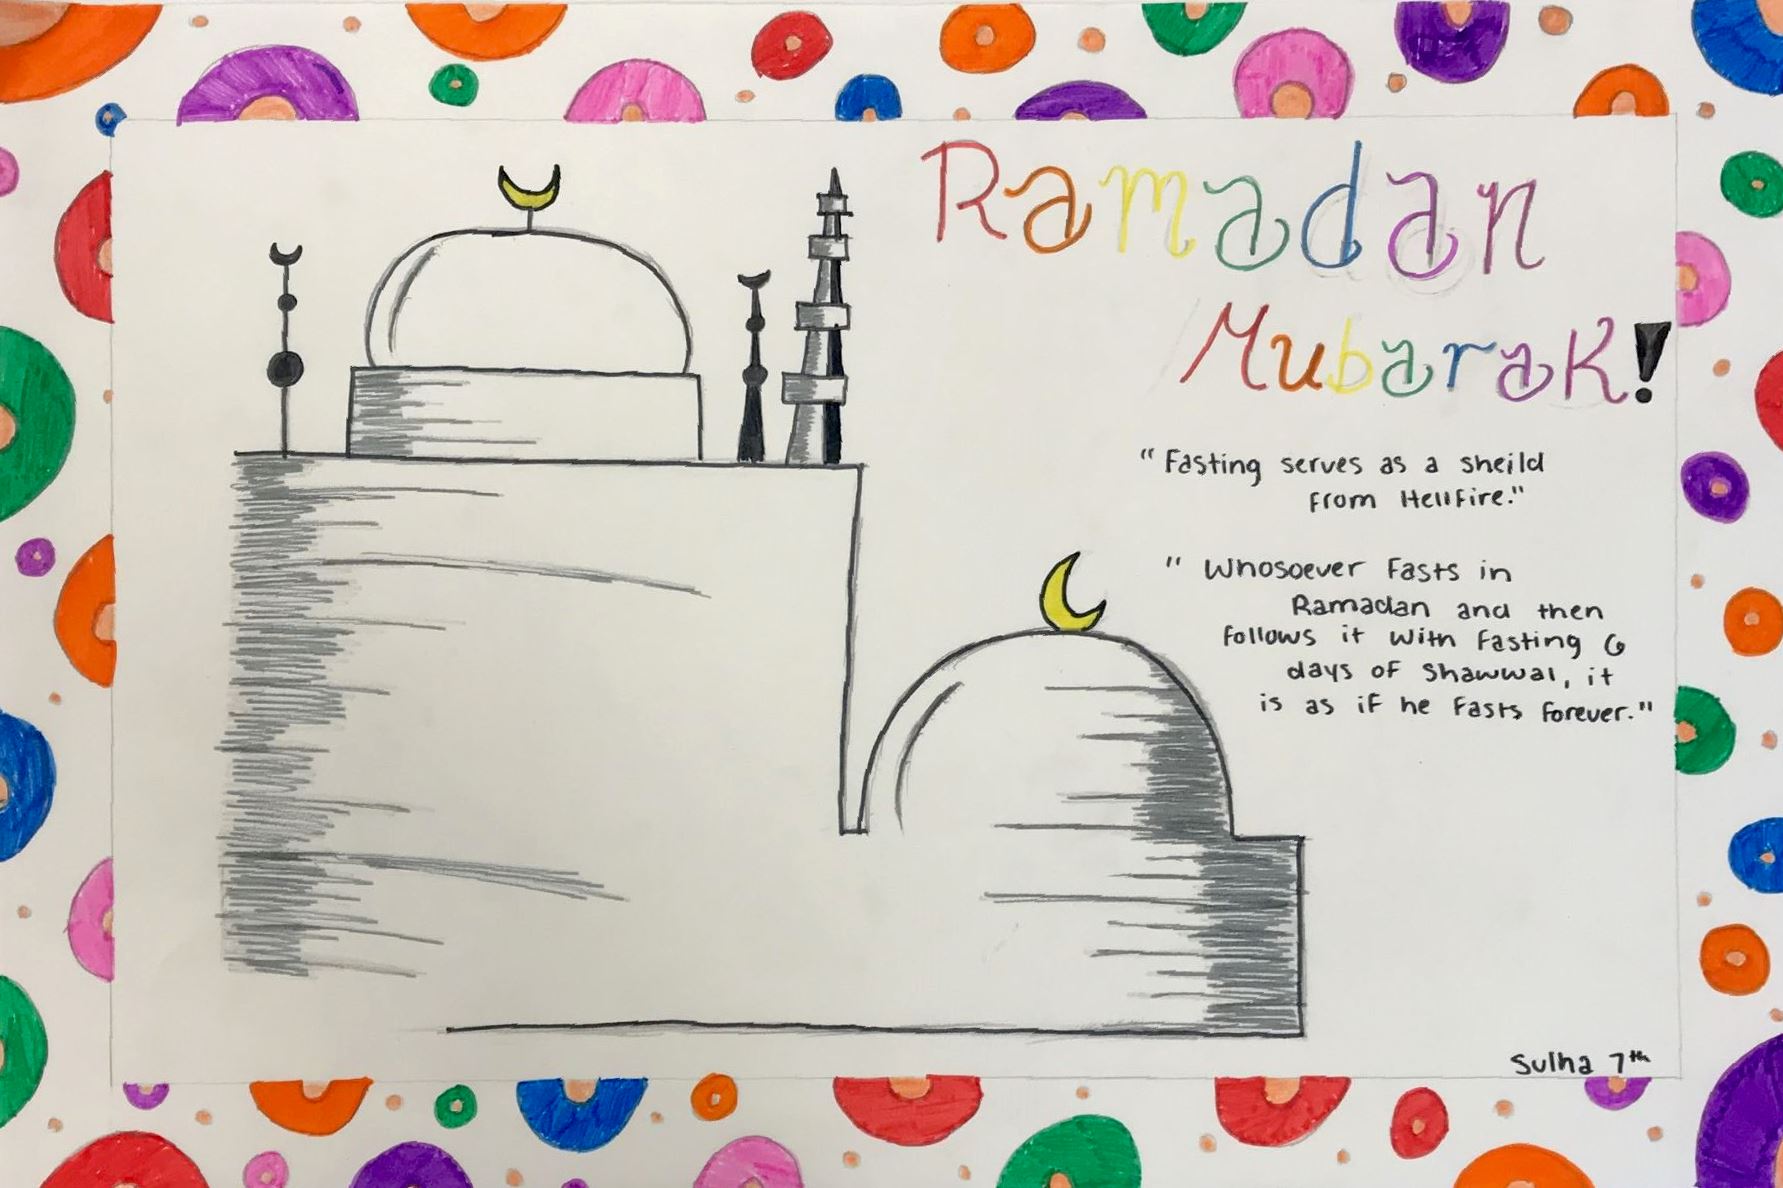 Ramadan
Mubarak!
"Fasting serves as a sheild
from Hellfire."
"Whosoever Fasts in
Ramadan and then
follows it with fasting 6
days of Shawwal, it
is as if he fasts forever."
Sulha 7th